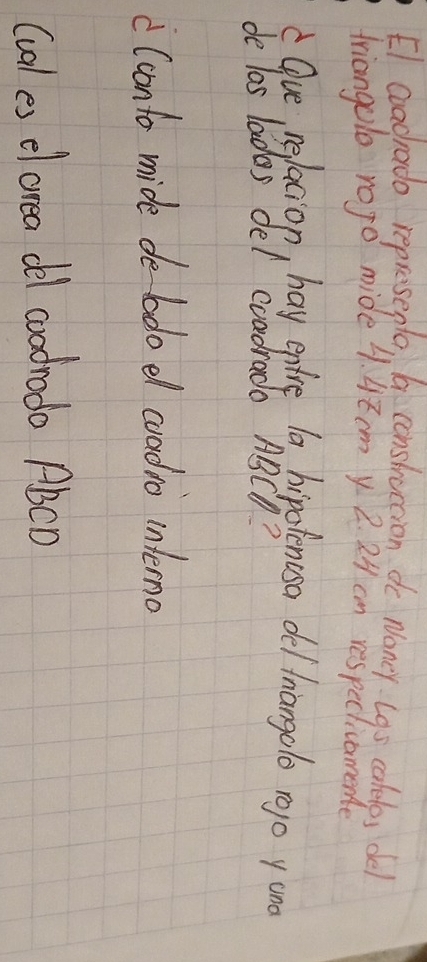 El cuadrado representa la construccion de Nancy. Las catetos del
triangulo rojo mide 4.47 cm y 2.24 cm respectivamente
¿Que relacion hay entre la hipotenusa del triangulo rojo y una
de los lados del cuadrado ABCD?
¿Cuanto mide de lado el cuadro interno
Cual es el area del cuadrado ABCD